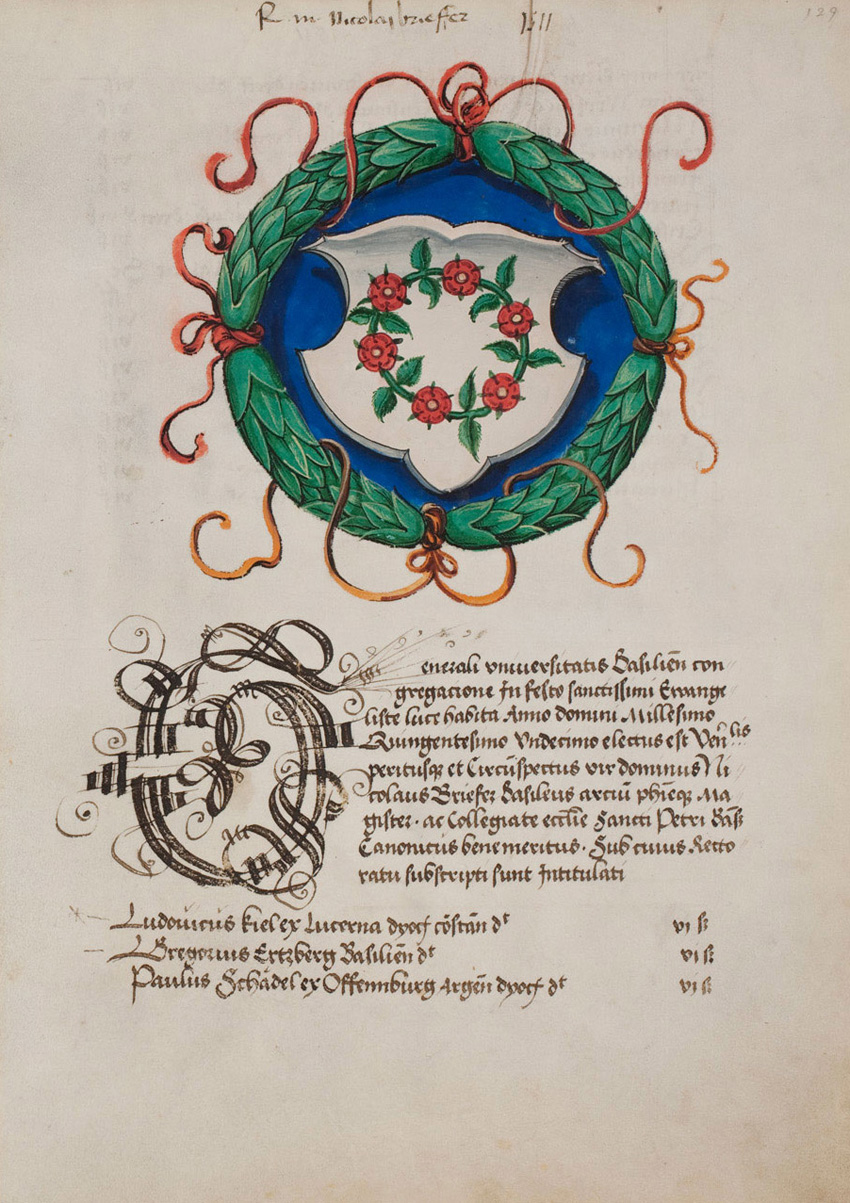 R. m. Nicolaus briefer 1511
129
Generali vniuersitatis Basilien̄ con
gregacione In festo sanctissimi Ewange
liste luce habita Anno domini Millesimo
Quingentesimo Vndecimo electus est Ven̄lis
peritusq̄ et Circūspectus vir dominus Ni
colaus Briefer Basileus arciū ph̄ieq̄ Ma
gister · ac Collegiate eccl̄ie Sancti Petri Bas̄
Canonicus benemeritus · Sub cuius Recto
ratu subscripti sunt Intitulati
Ludouicus Kiel ex Lucerna dyoc̄ cōstan̄ dt vi ß
Gregorius Ertzberg Basilien̄ dt vi ß
Paulus Schädel ex Offennburg Argen̄ dyoc̄ dt vi ß